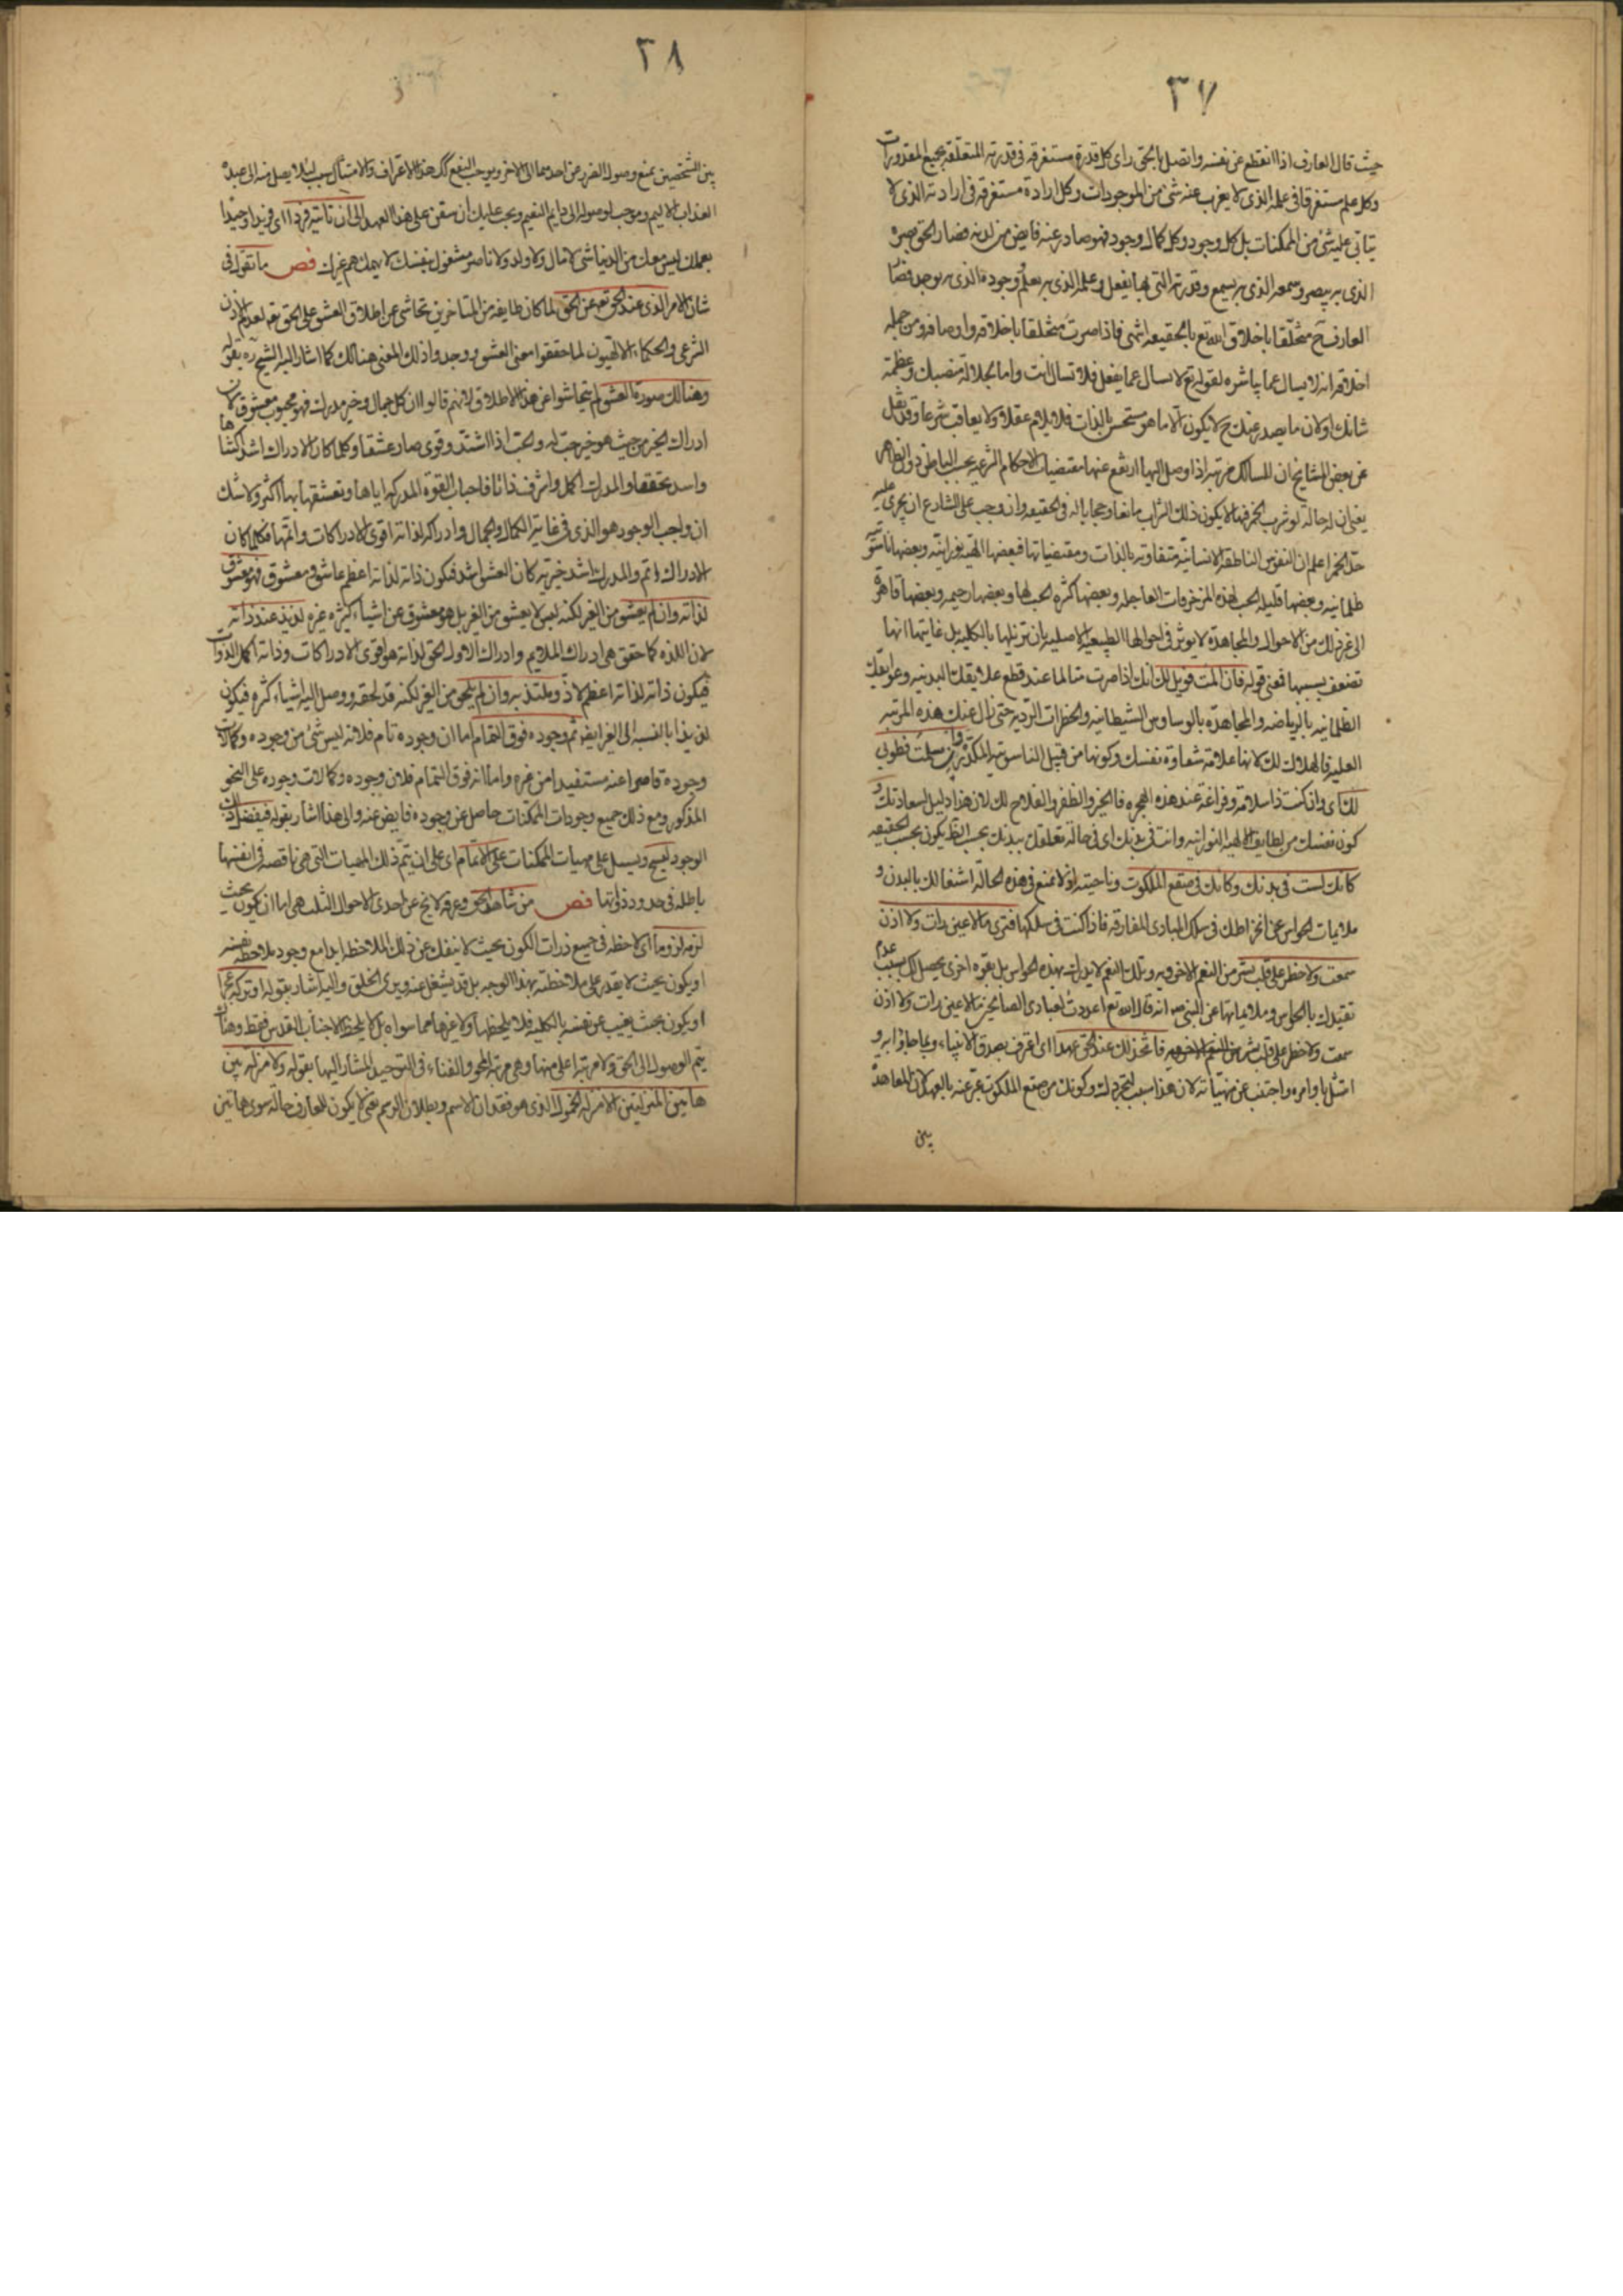 ٣٧
حيث قال العارف اذا انقطع عن نفسه واتصل بالحق راى كل قدرة مستغرقة فى قدرته المتعلقة بجميع المقدورات
وكل علم مستغرقا فى علمه الذى لا يعزب عنه شئ من الموجودات وكل ارادة مستغرقة فى ارادته الذى لا
يتابى عليه شئ من الممكنات بل كل وجود وكل كمال وجود فهو صادر عنه فايض من لدنه فصار الحق بصره
الذى به يبصر وسمعه الذى به يسمع وقدرته التى بها يفعل وعلمه الذى به يعلم وجوده الذى به يوجد فصار
العارف ح متخلقا باخلاق الله تع بالحقيقه انتهى فاذا صرت متخلقا باخلاقه واوصافه ومن جمله
اخلاقه انه لا يسال عما يباشره لقوله تع لا يسال عما يفعل فلا تسال انت واما بجلالة منصبك وعظمة
شانك اولان ما يصدر عنك ح لا يكون الا ما هو مستحسن بالذات فلا يلام عقلا ولا يعاقب شرعا وقد نقل
عن بعض المشايخ ان للسالك مرتبه اذا وصل اليها ارتفع عنها مقتضيات الاحكام الشرعيه بحسب الباطن دون الظاهر
يعنى ان له حالة لو شرب الخمر فيها لا يكون ذلك الشراب مانعا وحجابا له فى الحقيقه وان وجب على الشارع ان يجرى عليه
حد الخمر اعلم ان النفوس الناطقة الانسانية متفاوته بالذات ومقتضياتها فبعضها الهيه نورانيه وبعضها ناسوتيه
ظلمانيه وبعضها قليله الحب لهذه المزخرفات العاجله وبعضها كثره الحب لها وبعضها رحيمه وبعضها قاهرة
الى غير ذلك من الاحوال والمجاهدة لا يوثر فى احوالها الطبيعيه الاصليه بان تزيلها بالكليه بل غايتها انها
تضعف بسببها فمعنى قوله فان المت فويل لك انك اذا صرت متالما عند قطع علايقك البدنيه وعوايقك
الظلمانيه بالرياضه والمجاهده بالوساوس الشيطانيه والخطرات الرديه حتى زال عنك هذه المرتبه
العليه فالهلاك لك لانها علامة شقاوة نفسك وكونها من قبيل الناسوتيه المكدره وان سلمت فطوبى
لك اى وان كنت ذا سلامة وفراغة عند هذه الهجره فالخير والظفر والفلاح لك لان هذا دليل لسعادتك و
كون نفسك من لطايف الالهيه النورانيه وانت فى بدنك اى فى حالة تعلقك ببدنك بحسب الظ يكون بحسب الحقيقه
كانك لست فى بدنك وكانك فى صقع الملكوت وناحيته اذ لا تمنع فى هذه الحالة اشتغالك بالبدن و
ملايمات الحواس عن انخراطك فى سلك المبادى المفارقه فاذا كنت فى سلكها فترى ما لا عين رات ولا اذن
سمعت ولا خطر على قلب بشر من النعم الاخرويه وتلك النعم لا يدرك بهذه الحواس بل بقوه اخرى يحصل لك بسبب عدم
تقيدك بالحواس وملايماتها عن النبى ص انه قال الله تع اعددت لعبادى الصالحين ما لا عين رات ولا اذن
سمعت ولا خطر على قلب بشر من النعم الاخرويه فاتخذ لك عند الحق عهدا اى اعترف بصدق الانبياء وبما جاؤا به و
امتثل باوامره واجتنب عن منهياته لان هذا سبب لتجردك وكونك من صقع الملكوت عبر عنه بالعهد لان المعاهدة
بين
٣٨
بين الشخصين يمنع وصول الضرر من احدهما الى الاخر ويوجب النفع كك هذا الاعتراف والامتثال سبب لئلا يصل منه الى عبده
العذاب الاليم وموجب لوصوله الى دايم النعيم ويجب عليك ان تبقى على هذا العهد الى ان تاتيه فردا اى فريدا وحيدا
بعملك ليس معك من الدنيا شى لا مال ولا ولد ولا ناصر مشغول بنفسك لا يهمك هم غيرك فص ما تقول فى
شان الامر الذى عند الحق تع عن الحق لما كان طايفه من المتاخرين تحاشى عن اطلاق العشق على الحق تع لعدم الاذن
الشرعى والحكماء الالهيون لما حققوا معنى العشق ووجدوا ذلك المعنى هنالك كما اشار اليه الشيخ ره بقوله
وهنالك صورة العشق لم يتحاشوا عن هذا الاطلاق لانهم قالوا ان كل جمال وخير مدرك فهو محبوب معشوق لان
ادراك الخير من حيث هو خير حب له والحب اذا اشتد وقوى صار عشقا وكلما كان الادراك اشد اكتناها
واسد تحققا والمدرك اكمل واشرف ذاتا فاحباب القوة المدركه اياها وتعشقها بها اكثر ولا شك
ان واجب الوجود هو الذى فى غاية الكمال والجمال وادراكه لذاته اقوى الادراكات واتمها فكلما كان
الادراك اتم والمدرك اشد خيريه كان العشق اشد فيكون ذاته لذاته اعظم عاشق ومعشوق فهو معشوق
لذاته وان لم يعشق من الغير لكنه ليس لا يعشق من الغير بل هو معشوق عن اشياء كثيره غيره لذيذ عند ذاته
لان اللذه كما حقق هى ادراك الملايم وادراك الاول الحق لذاته هو اقوى الادراكات وذاته اكمل الذوات
فيكون ذاته لذاته اعظم لاذ وملتذ به وان لم يلحق من الغير لكنه قد لحقه ووصل اليه اشياء كثره فيكون
لذيذا بالنسبه الى الغير ايضا ثم وجوده فوق التمام اما ان وجوده تام فلانه ليس شئ من وجوده وكمالات
وجوده قاصرا عنه مستفيدا من غيره واما انه فوق التمام فلان وجوده وكمالات وجوده على النحو
المذكور ومع ذلك جميع وجودات الممكنات حاصل عن وجوده فايض عنه والى هذا اشار بقوله فيفضل ذلك
الوجود ليسيح ويسيل على مهيات الممكنات على الاتمام اى على ان يتم ذلك المهيات التى هى ناقصه فى انفسها
باطله فى حدود ذواتها فص من شاهد الحق وعرفه لا يخ عن احدى الاحوال الثلث هى اما ان يكون بحيث
لزمه لزوما اى لاحظه فى جميع ذرات الكون بحيث لا ينفك عن ذلك الملاحظه ابدا مع وجود ملاحظه نفسه
او يكون بحيث لا يقدر على ملاحظته بهذا الوجه بل قد يشغل عنه ويرى الخلق واليه اشار بقوله او تركه عجزا
او يكون بحيث يغيب عن نفسه بالكليه فلا يلحظها ولا غيرها مما سواه بل لا يلحظ الا جناب القدس فقط وهناك
يتم الوصول الى الحق ولا مرتبه اعلى منها وهى مرتبة المحو والفناء فى التوحيد المشار اليها بقوله ولا منزلة بين
هاتين المنزلتين الا منزلة الخمول الذى هو فقدان الاسم وبطلان الرسم يعنى لا يكون للعارف حاله سوى هاتين